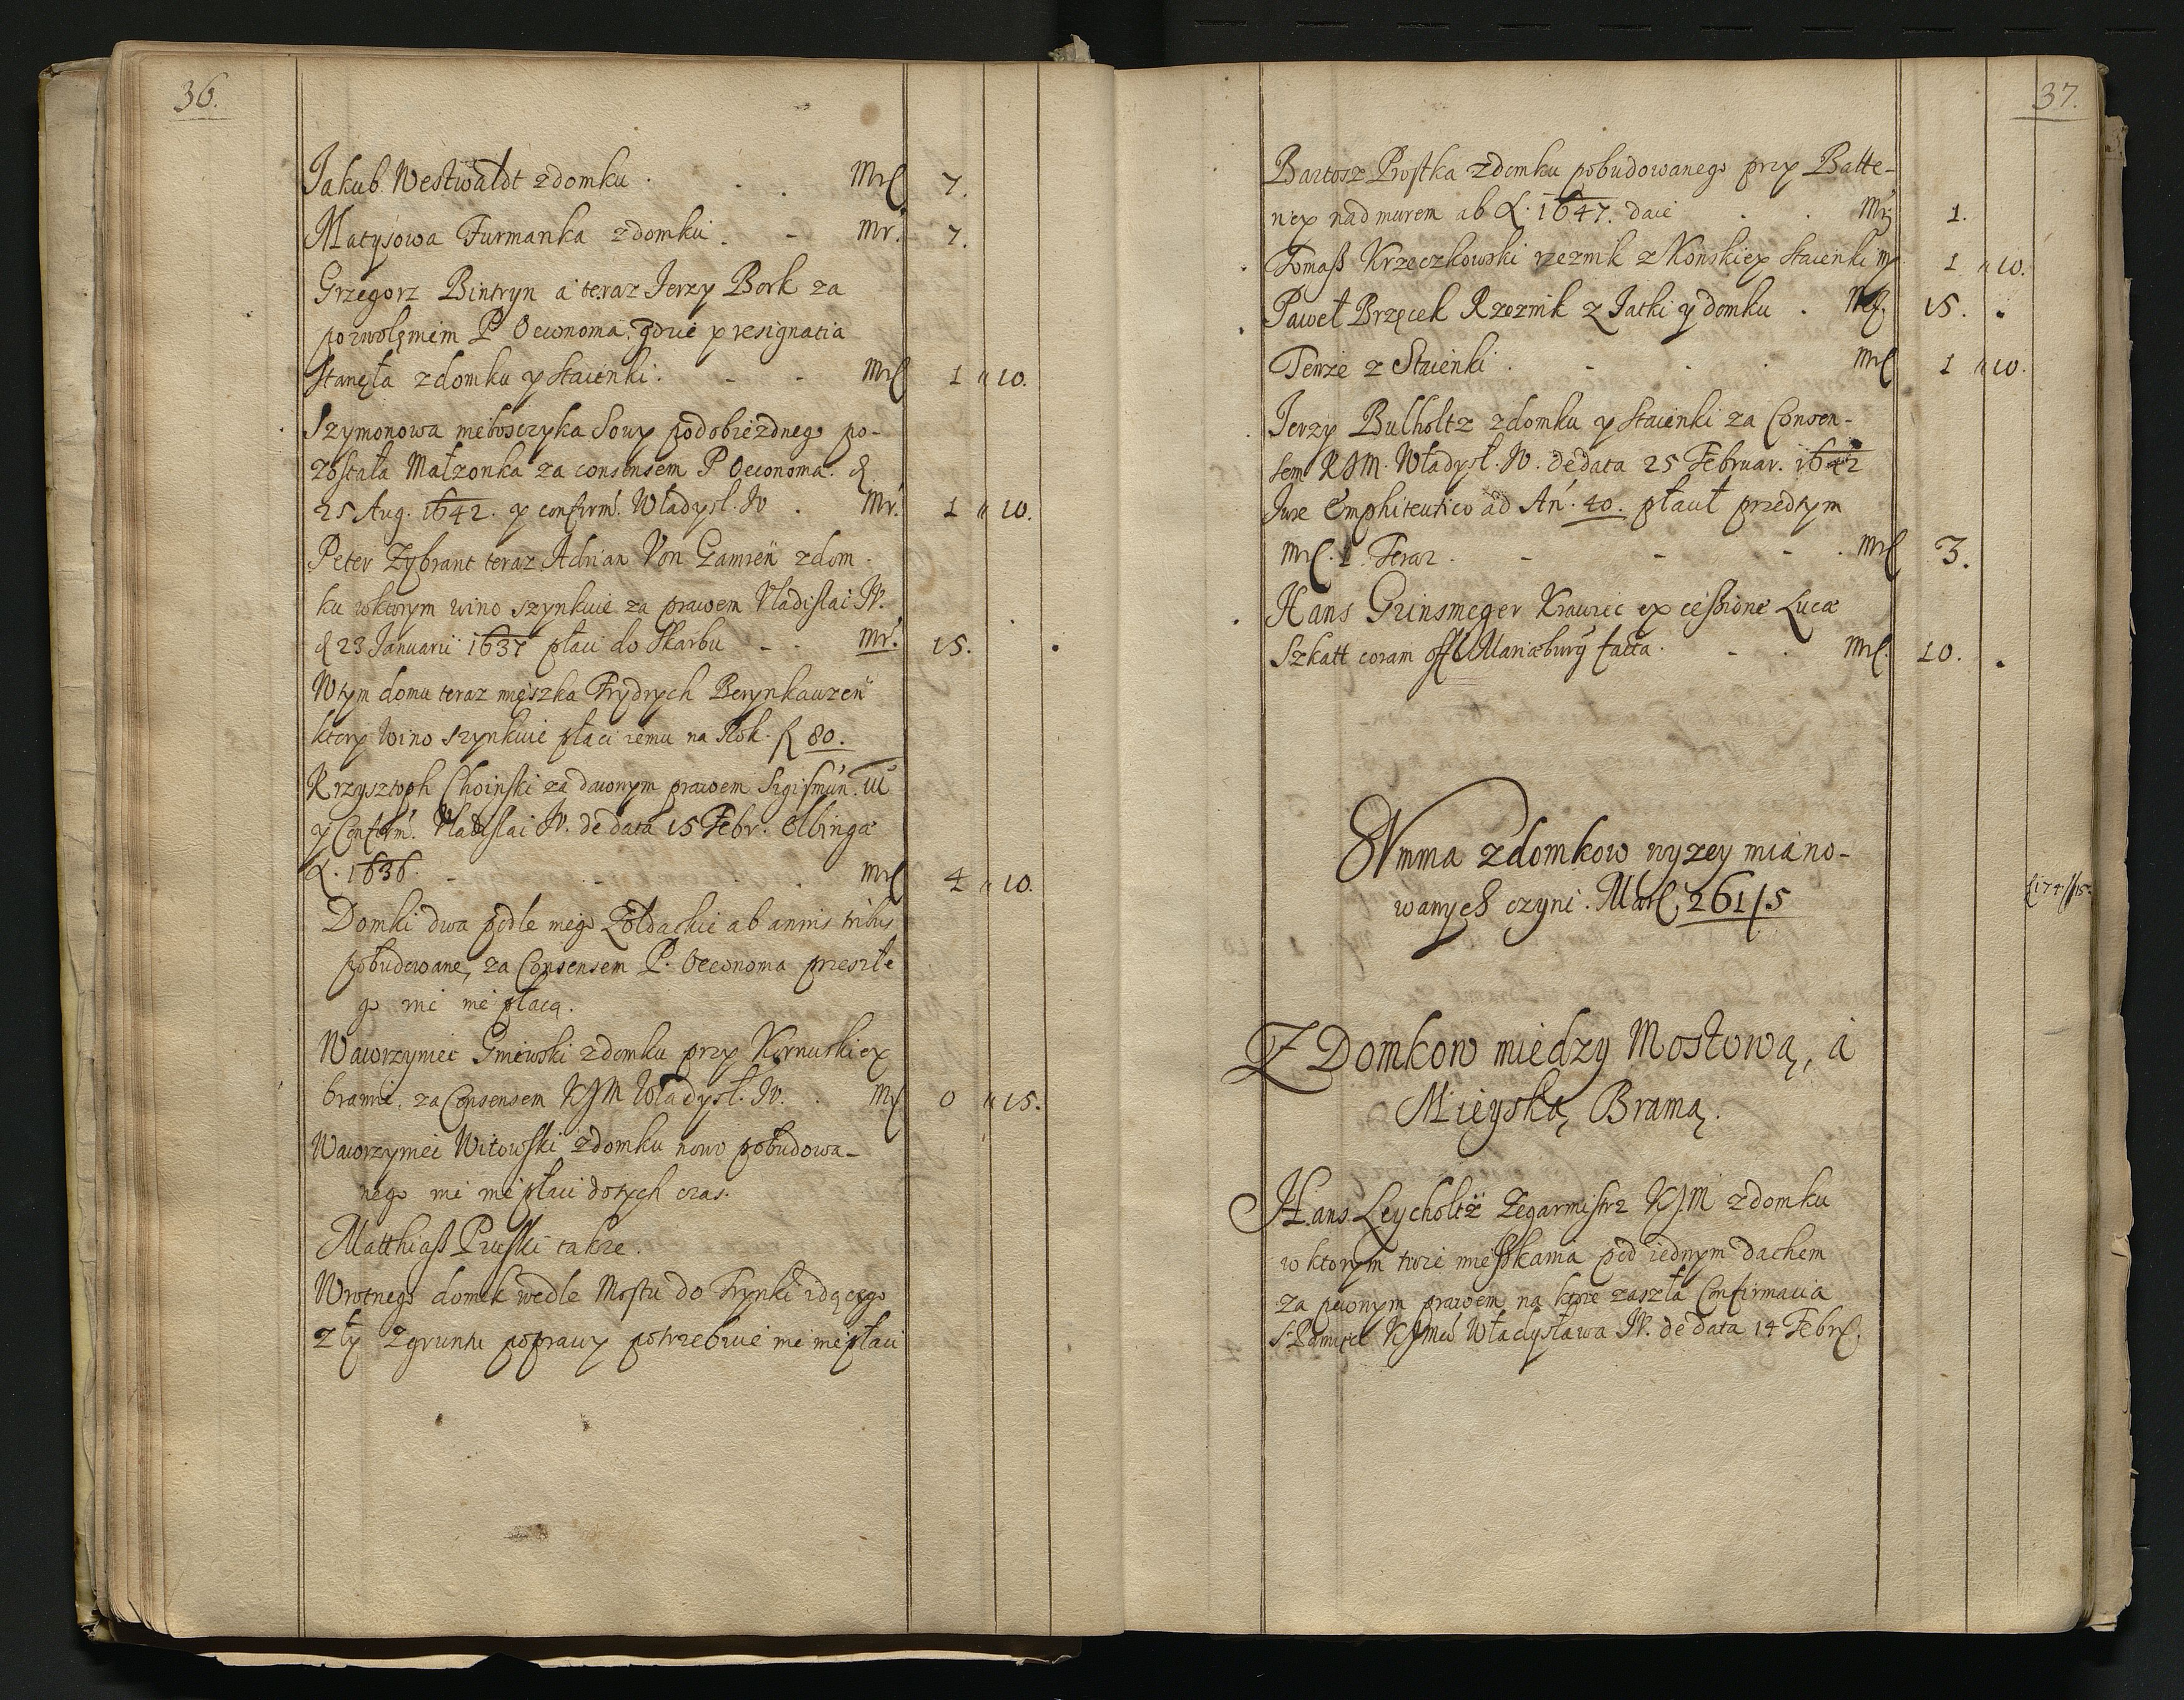 36.
Jakub Westwaldt z domku . . . Mrl 7.
Matysowa Furmanka z domku . - Mr. 7.
Grzegorz Bintryn a teraz Jerzy Bork za
pozwolęniem P Oeconoma. gdzie p resignatia
stanęła z domku y staienki . - - Mrl 1 " 10.
Szymonowa niebosczyka Sowy podobiezdnego po-
zostala Małzonka za consensem P Oeconoma. d
25 Aug. 1642. y confirm. Wladysl. IV . Mr. 1 " 10.
Peter Zybrant teraz Adrian Von Gamren z dom-
ku wktorym wino szynkuie za prawem Vladislai IV.
d 23 Januarii 1637 płaci do Skarbu - - Mr. 15.
W tym domu teraz mięszka Frydrych Berynkauzen
ktory Wino szynkuie płaci iemu na Rok. f 80.
Krzysztoph Choinski za dawnym prawem Sigismun. III
y Confirm. Vladislai IV. de data 15 Febr. Elbingæ
A. 1636. - - . . Mrl 4 " 10.
Domki dwa podle niego Zołdackie ab annis tribus
pobudowane, za Consensem P. Oeconoma przeszłe
go nic nie płacą.
Wawrzyniec Gniewski z domku przy Kornuskiey
bramie, za Consensem KJM Władysł. IV. . Mr 0 " 15.
Wawrzyniec Witowski z domku nowo pobudowa-
nego nic nie płaci dotych czas.
Matthiaß Pruski takze.
Wrotnego domek wedle Mostu do Frynki idącego
zły z gruntu poprawy potrzebuie nic nie płaci
37.
Bartosz Prostka z domku pobudowanego przy Batte-
riey nad murem ab A. 1647. daie . . Mr 1.
Tomaß Krzeczkowski rzeznik z Konskiey staienki mr 1 " 10.
Paweł Brzęcek Rzeznik z Jatki y domku . Mr. 15.
Tenze z Staienki . - . . Mrl 1 " 10.
Jerzy Bulholtz z domku y staienki za Consen-
sem KJM. Władysł. IV. de data 25 Februar. 1642
Jure Emphiteutico ad An. 40. płacił przedtym
Mrl. 1. Teraz . - - - . Mrl 3.
Hans Grinsmeger Krawiec ex cessione Lucæ
Szkatt coram Mariæburg facta . - . Mrl. 10.
SVmma z domkow wyzey miano-
wanych czyni. Marl 261/5
Z Domkow miedzy Mostową, a
Mieyską Bramą.
Hans Leycholtz Zegarmistrz KJM z domku
w ktorym troie mießkania pod iednym dachem
za pewnym prawem na ktore zaszła Confirmacia
KJMci Władysława IV. de data 14 Febr.